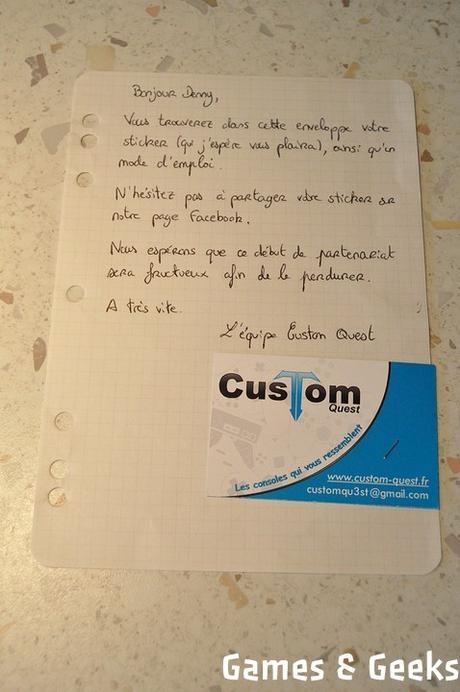 Bonjour Denny,
Vous trouverez dans cette enveloppe votre
sticker (qui j'espère vous plaira), ainsi qu'un
mode d'emploi.
N'hésitez pas à partager votre sticker sur
notre page Facebook.
Nous espérons que ce début de partenariat
sera fructueux afin de le perdurer.
A très vite.
L'équipe Custom Quest
CusTom
Quest
Les consoles qui vous ressemblent
www.custom-quest.fr
customqu3st@gmail.com
Games & Geeks